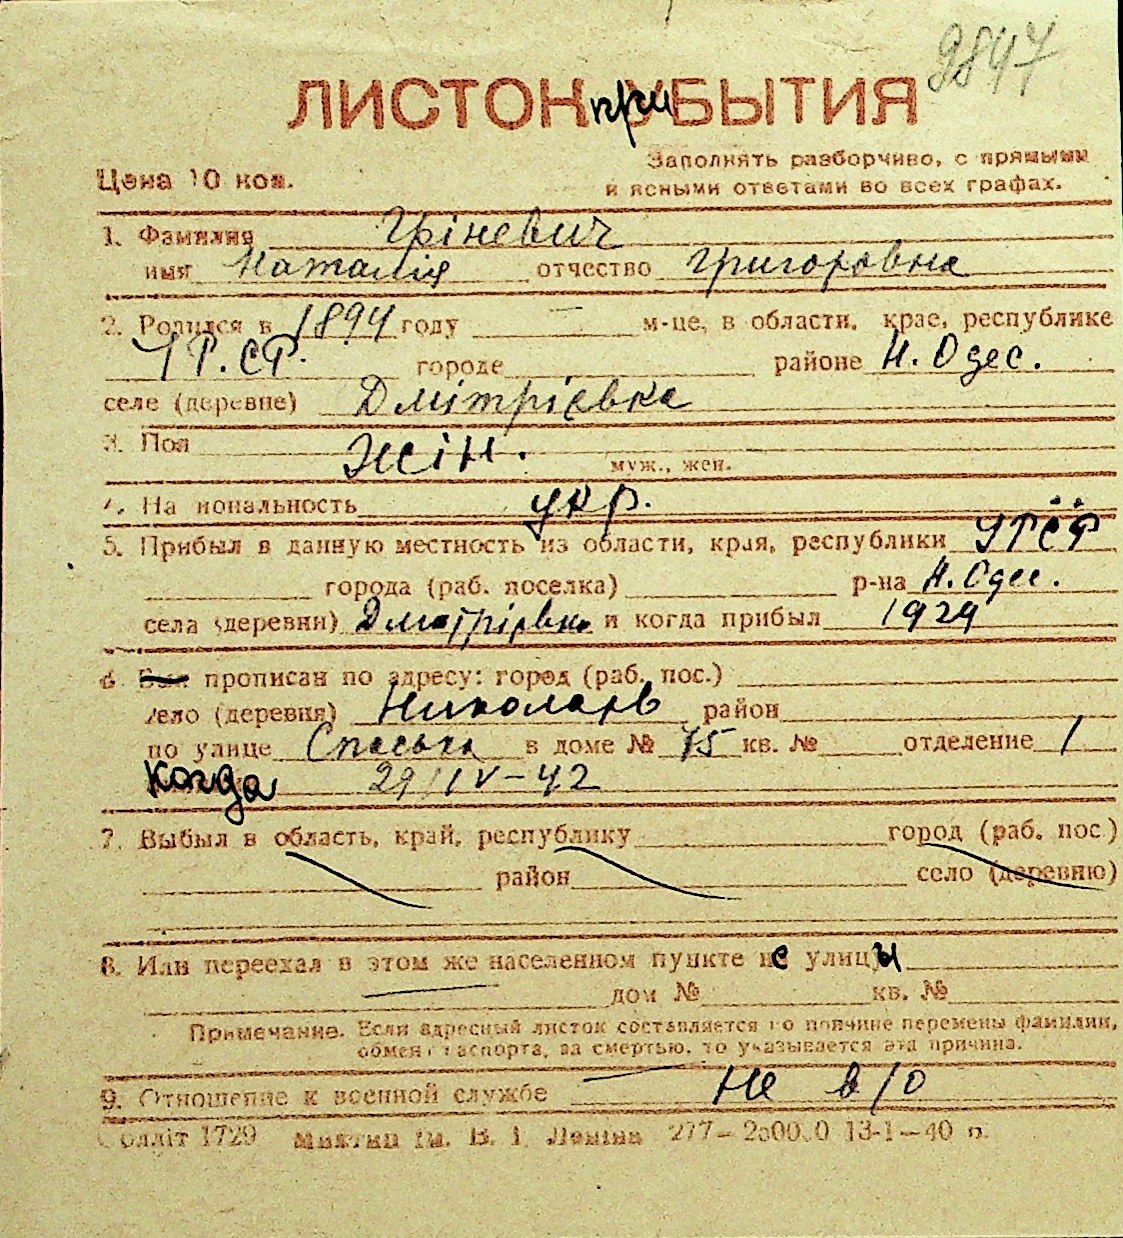 9847
ЛИСТОК прибЫТИЯ
Цена 10 коп.
Заполнять разборчиво, с прямыми
и ясными ответами во всех графах.
1. Фамилия Гріневич
имя Наталія отчество Григоровна
2. Родился в 1894 году — м-це, в области, крае, республике
УР.СР. городе районе Н. Одес.
селе (деревне) Дмітрієвка
3. Пол Жін.
муж., жен.
4. Национальность укр.
5. Прибыл в данную местность из области, края, республики УРСР
города (раб. поселка) р-на Н. Одес.
села (деревни) Дмитрівка и когда прибыл 1929
6. Был прописан по адресу: город (раб. пос.)
село (деревня) Николаев район
по улице Спаська в доме № 75 кв. № отделение 1
Когда 29/IV-42
7. Выбыл в область, край, республику город (раб. пос.)
район село (деревню)
8. Или переехал в этом же населенном пункте не улицы
дом № кв. №
Примечание. Если адресный листок составляется по причине перемены фамилии,
обмена паспорта, за смертью, то указывается эта причина.
9. Отношение к военной службе — Не в/о
Облліт 1729 Миктип ім. В. І. Леніна 277— 13-1—40 р.